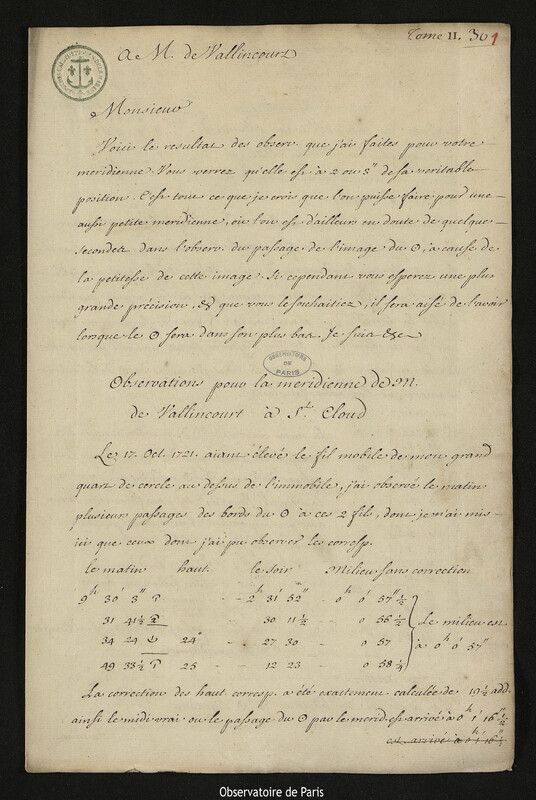 Tome II. 30 1
A M. de Vallincourt
Monsieur
Voici le resultat des observ. que j'ai faites pour votre
meridienne. Vous verrez qu'elle est à 2 ou 3" de sa veritable
position. C'est tout ce que je crois que l'on puisse faire pour une
aussi petite meridienne, où l'on est d'ailleurs en doute de quelques
secondes dans l'observ. du passage de l'image du ☉, à cause de
la petitesse de cette image. Si cependant vous esperez une plus
grande précision, & que vous le souhaitiez, il sera aisé de l'avoir
lorsque le ☉ sera dans son plus bas. Je suis &c
OBSERVATOIRE
DE
PARIS
Observations pour la meridienne de M.
de Vallincourt à St. Cloud
Le 17. Oct. 1721. aiant élevé le fil mobile de mon grand
quart de cercle au dessus de l'immobile, j'ai observé le matin
plusieurs passages des bords du ☉ à ces 2 fils, dont je n'ai mis
ici que ceux dont j'ai pu observer les corresp.
le matin haut. le soir Milieu sans correction
9h 30' 3" - 2h 31' 52" - 0h 0' 57"½
31 41½ - 30 11½ 0 56½ Le milieu est
34 24 24° - 27 30 - 0 57 à 0h 0' 57"
49 33½ 25 - 12 23 - 0 58¼
La correction des haut. corresp. a été exactement calculée de 19½ add.
ainsi le midi vrai ou le passage du ☉ par le merid. est arrivé à 0h 1' 16"½
est arrivé à 0h 1' 16"½
Observatoire de Paris